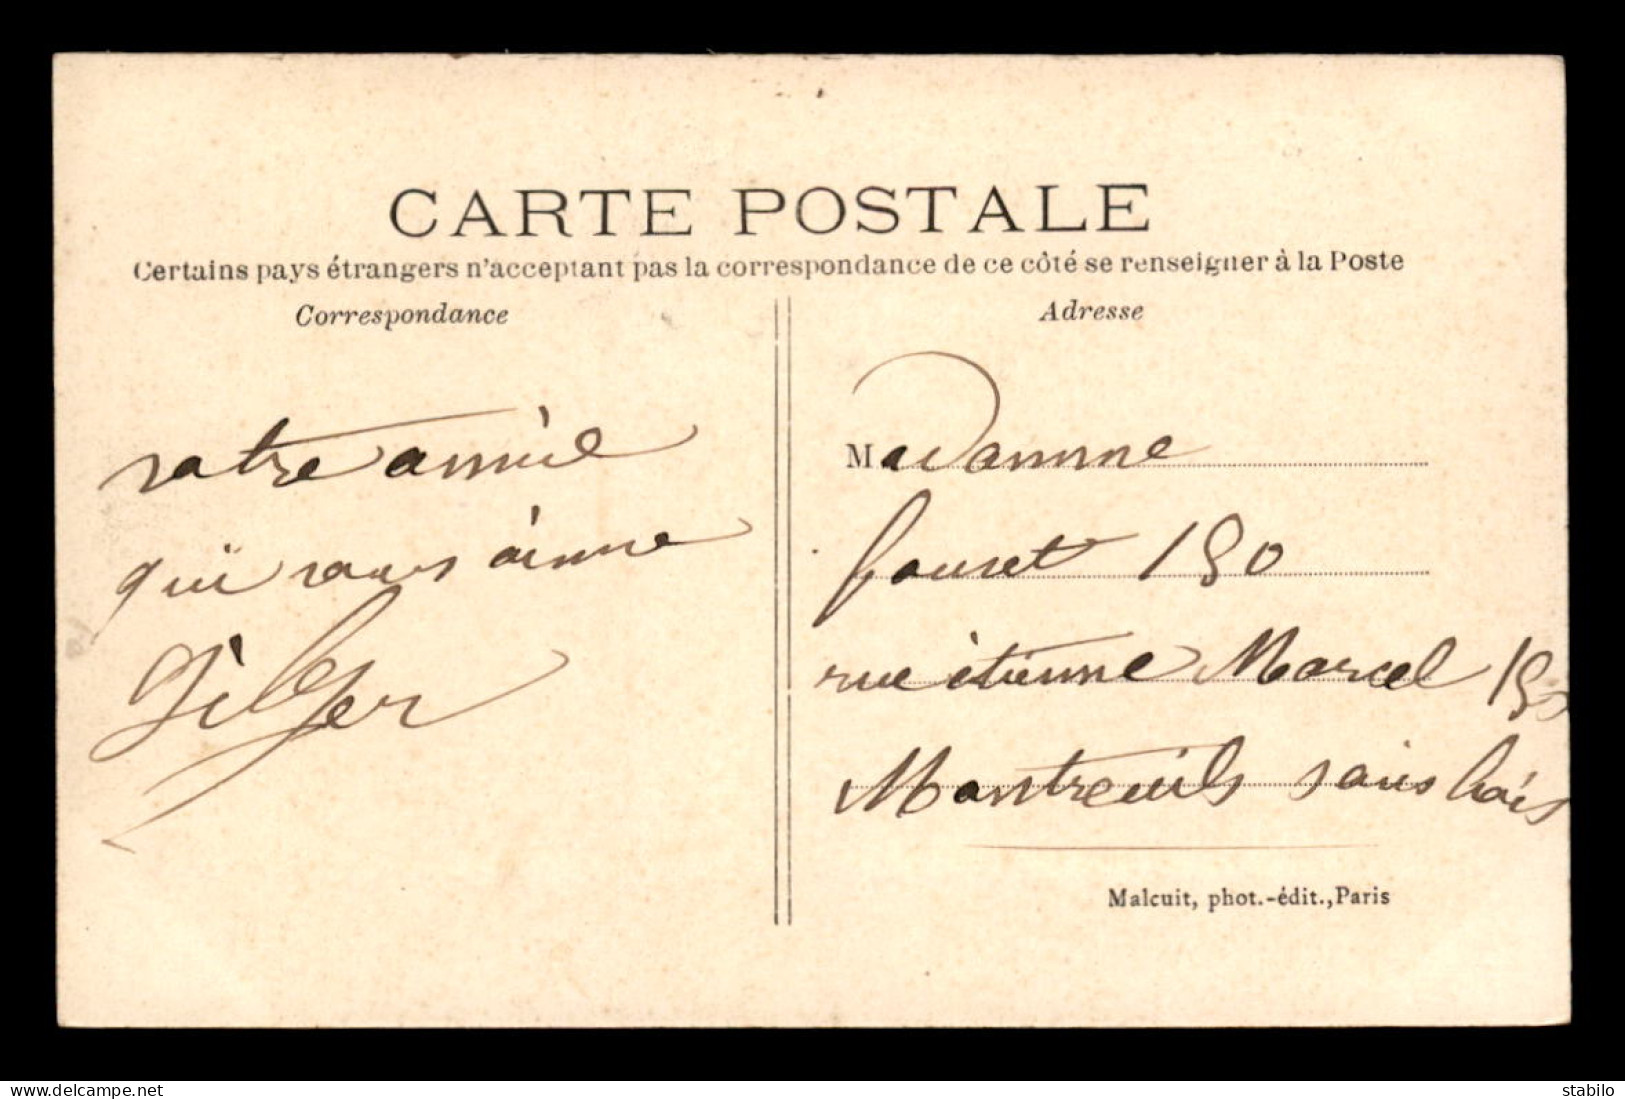 CARTE POSTALE
Certains pays étrangers n'acceptant pas la correspondance de ce côté se renseigner à la Poste
Correspondance
Adresse
votre amie
qui vous aime
Madamme
Fouret 150
rue étienne Marcel 150
Montreuils sous bois
Malcuit, phot.-édit., Paris
delcampe.net
stabilo